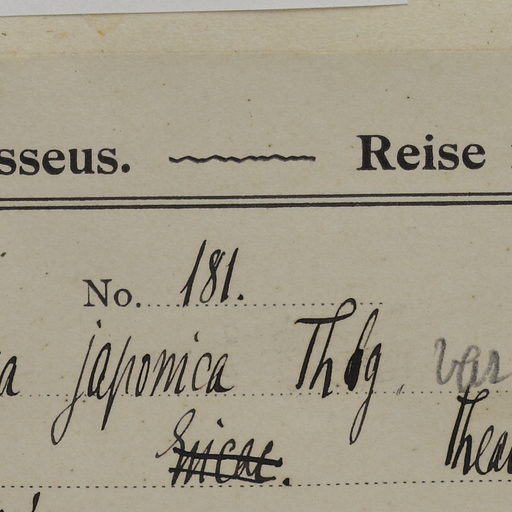 sseus. Reise
No. 181.
a japonica Thbg. var
Ericac.
Thea